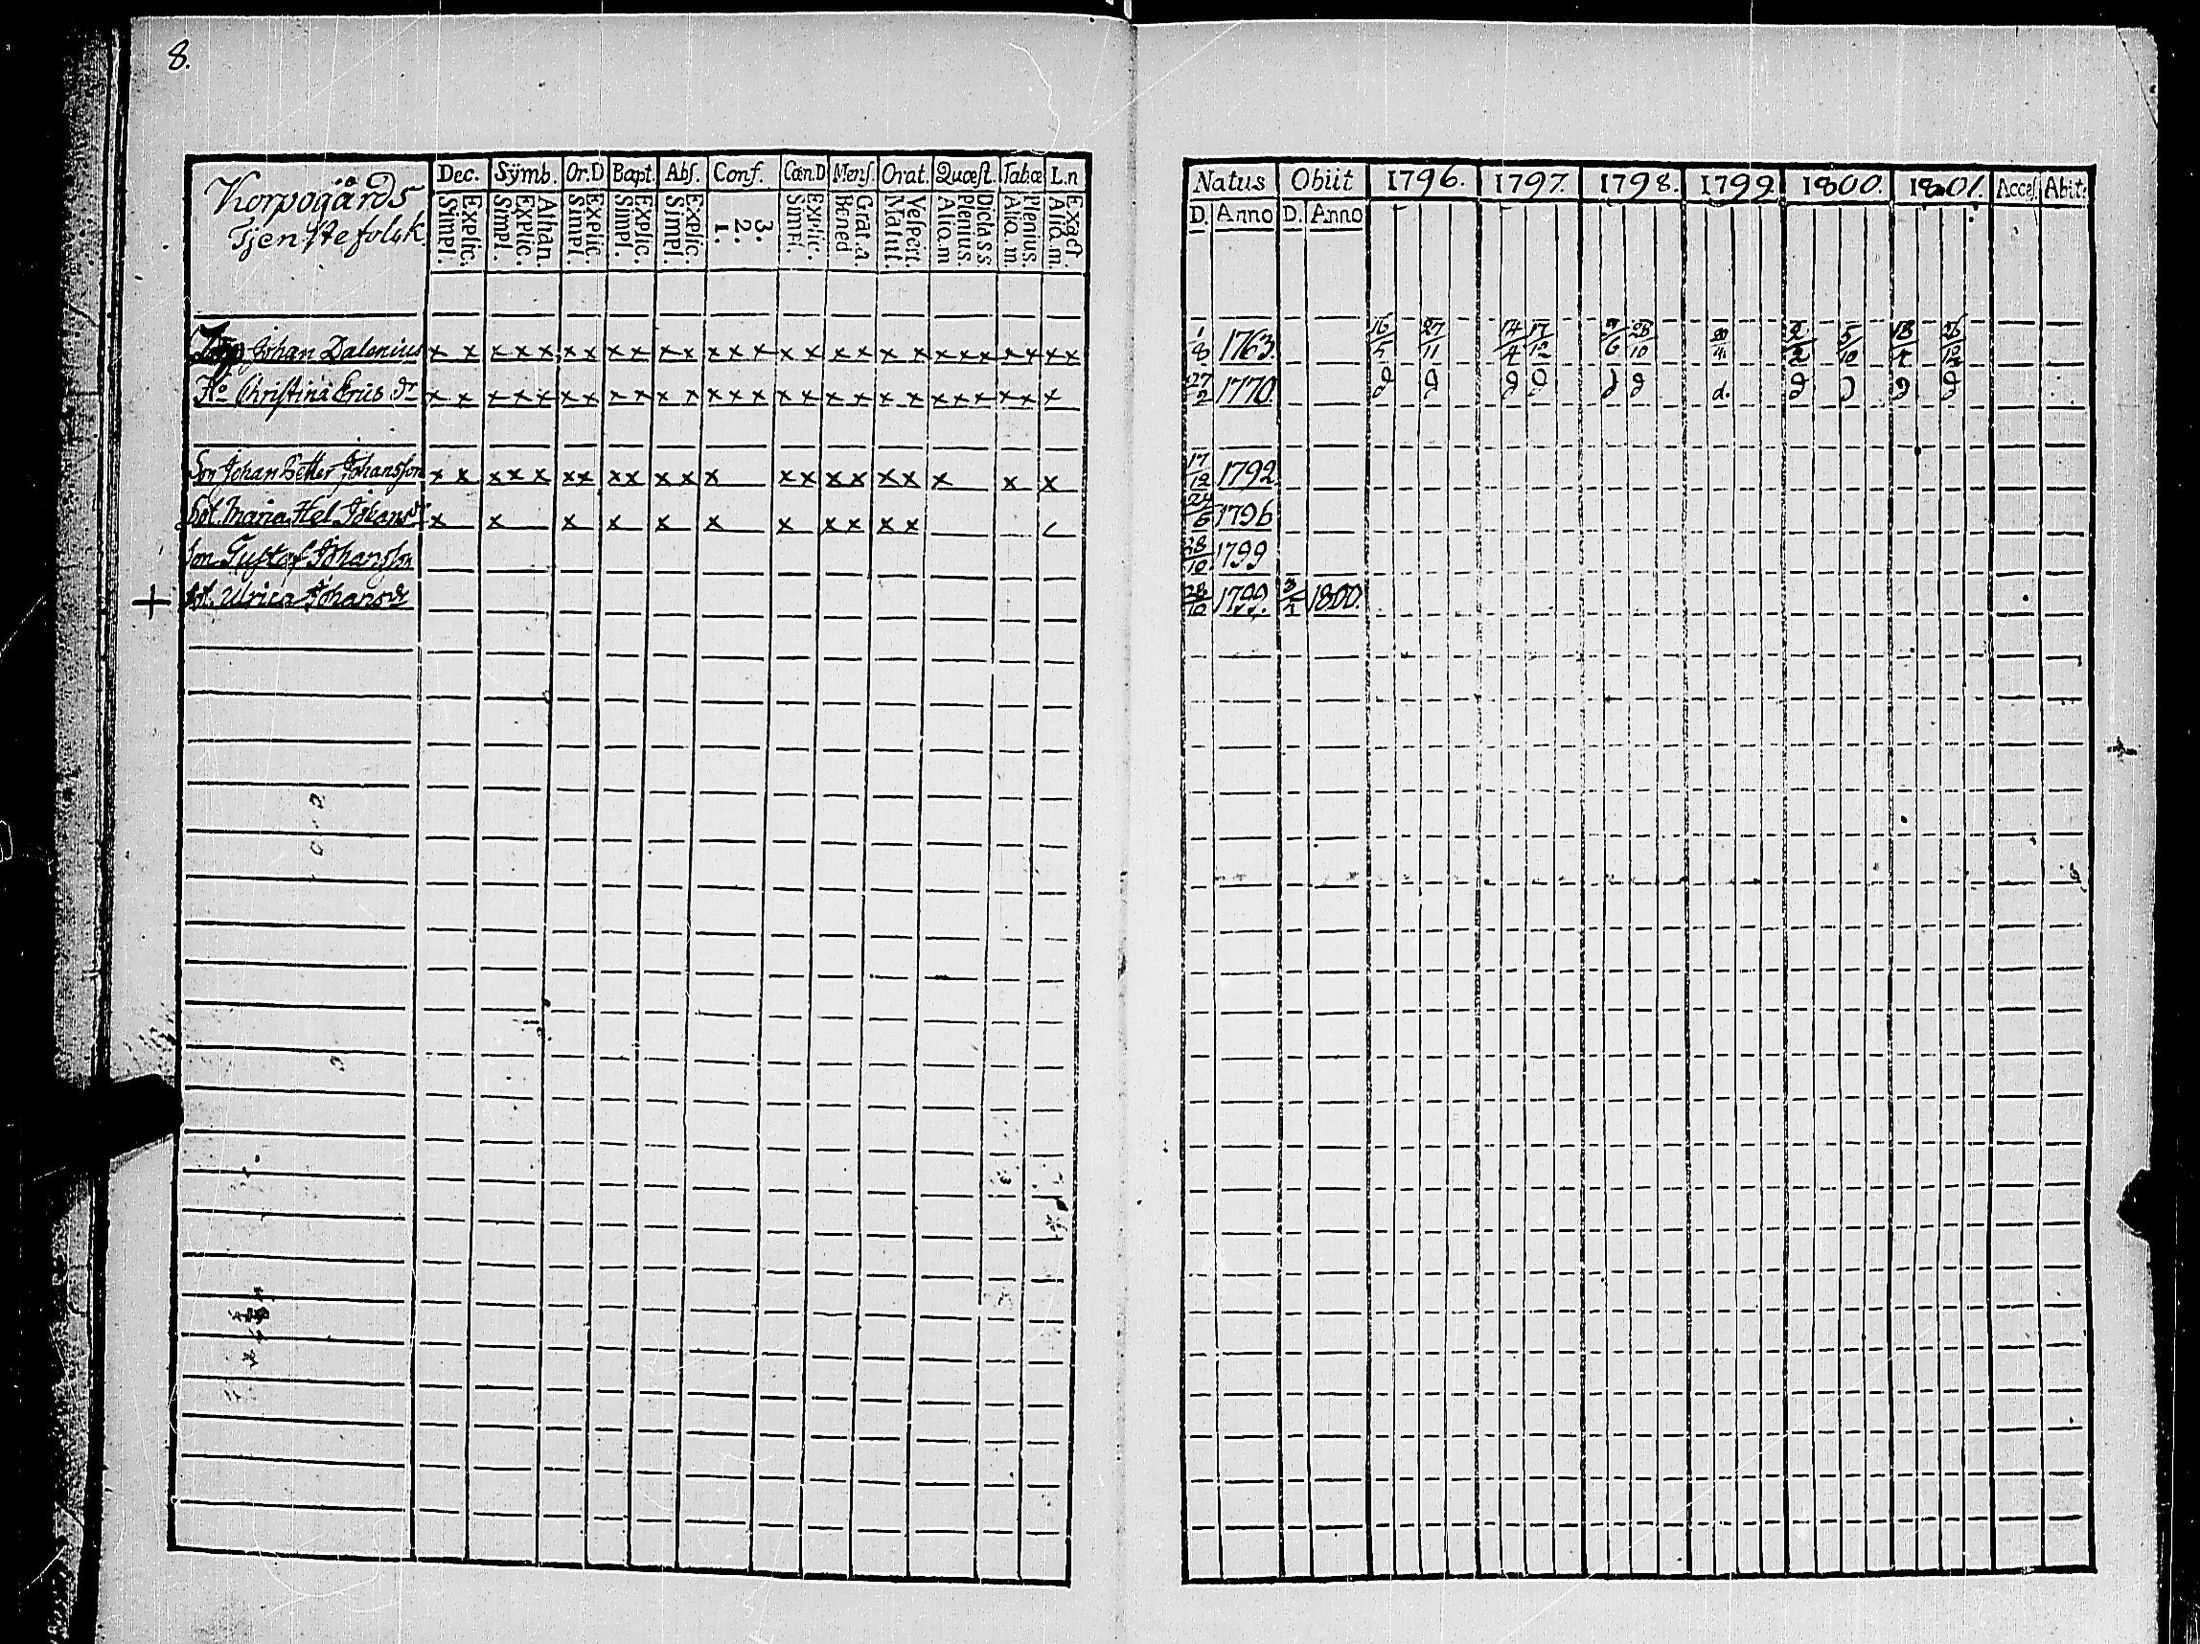 8.
Korpogårds
Tjenstefolck
Dec. Sÿmb. Or.D Bapt. Abs. Conf. Cœn.D Mens. Orat. Quæst. Tabæ L.n
Simpl. Explic. Simpl. Explic. Athan. Simpl. Explic Simpl. Explic. Simpl. Explic. 1. 2. 3. Simpl. Explic. Bened Grat.a. Matut. Vespert. Alio.m Plenius. Dicta s.s. Alio.m. Plenius. Alio.m. Exact.
Natus Obiit 1796. 1797. 1798. 1799. 1800. 1801. Acces. Abit.
D. Anno D. Anno
Johan Dalenius x x x x x x x x x x x x x x x x x x x x x x x x x x x 1/8 1763. 16/5 27/11 14/4 17/12 28/10 2/2 5/10 18/4
Ho Christina Erics dr x x x x x x x x x x x x x x x x x x x x x x x x x x 27/2 1770. d d d d d d d. d d d d
Son Johan Petter Johansson x x x x x x x x x x x x x x x x x x x x x 17/12 1792
dot. Maria Hel. Johansdr x x x x x x x x x x x 24/6 1796
Son Gustaf Johansson 28/10 1799
+ dot. Ulrica Johansdr 28/10 1799. 3/1 1800.